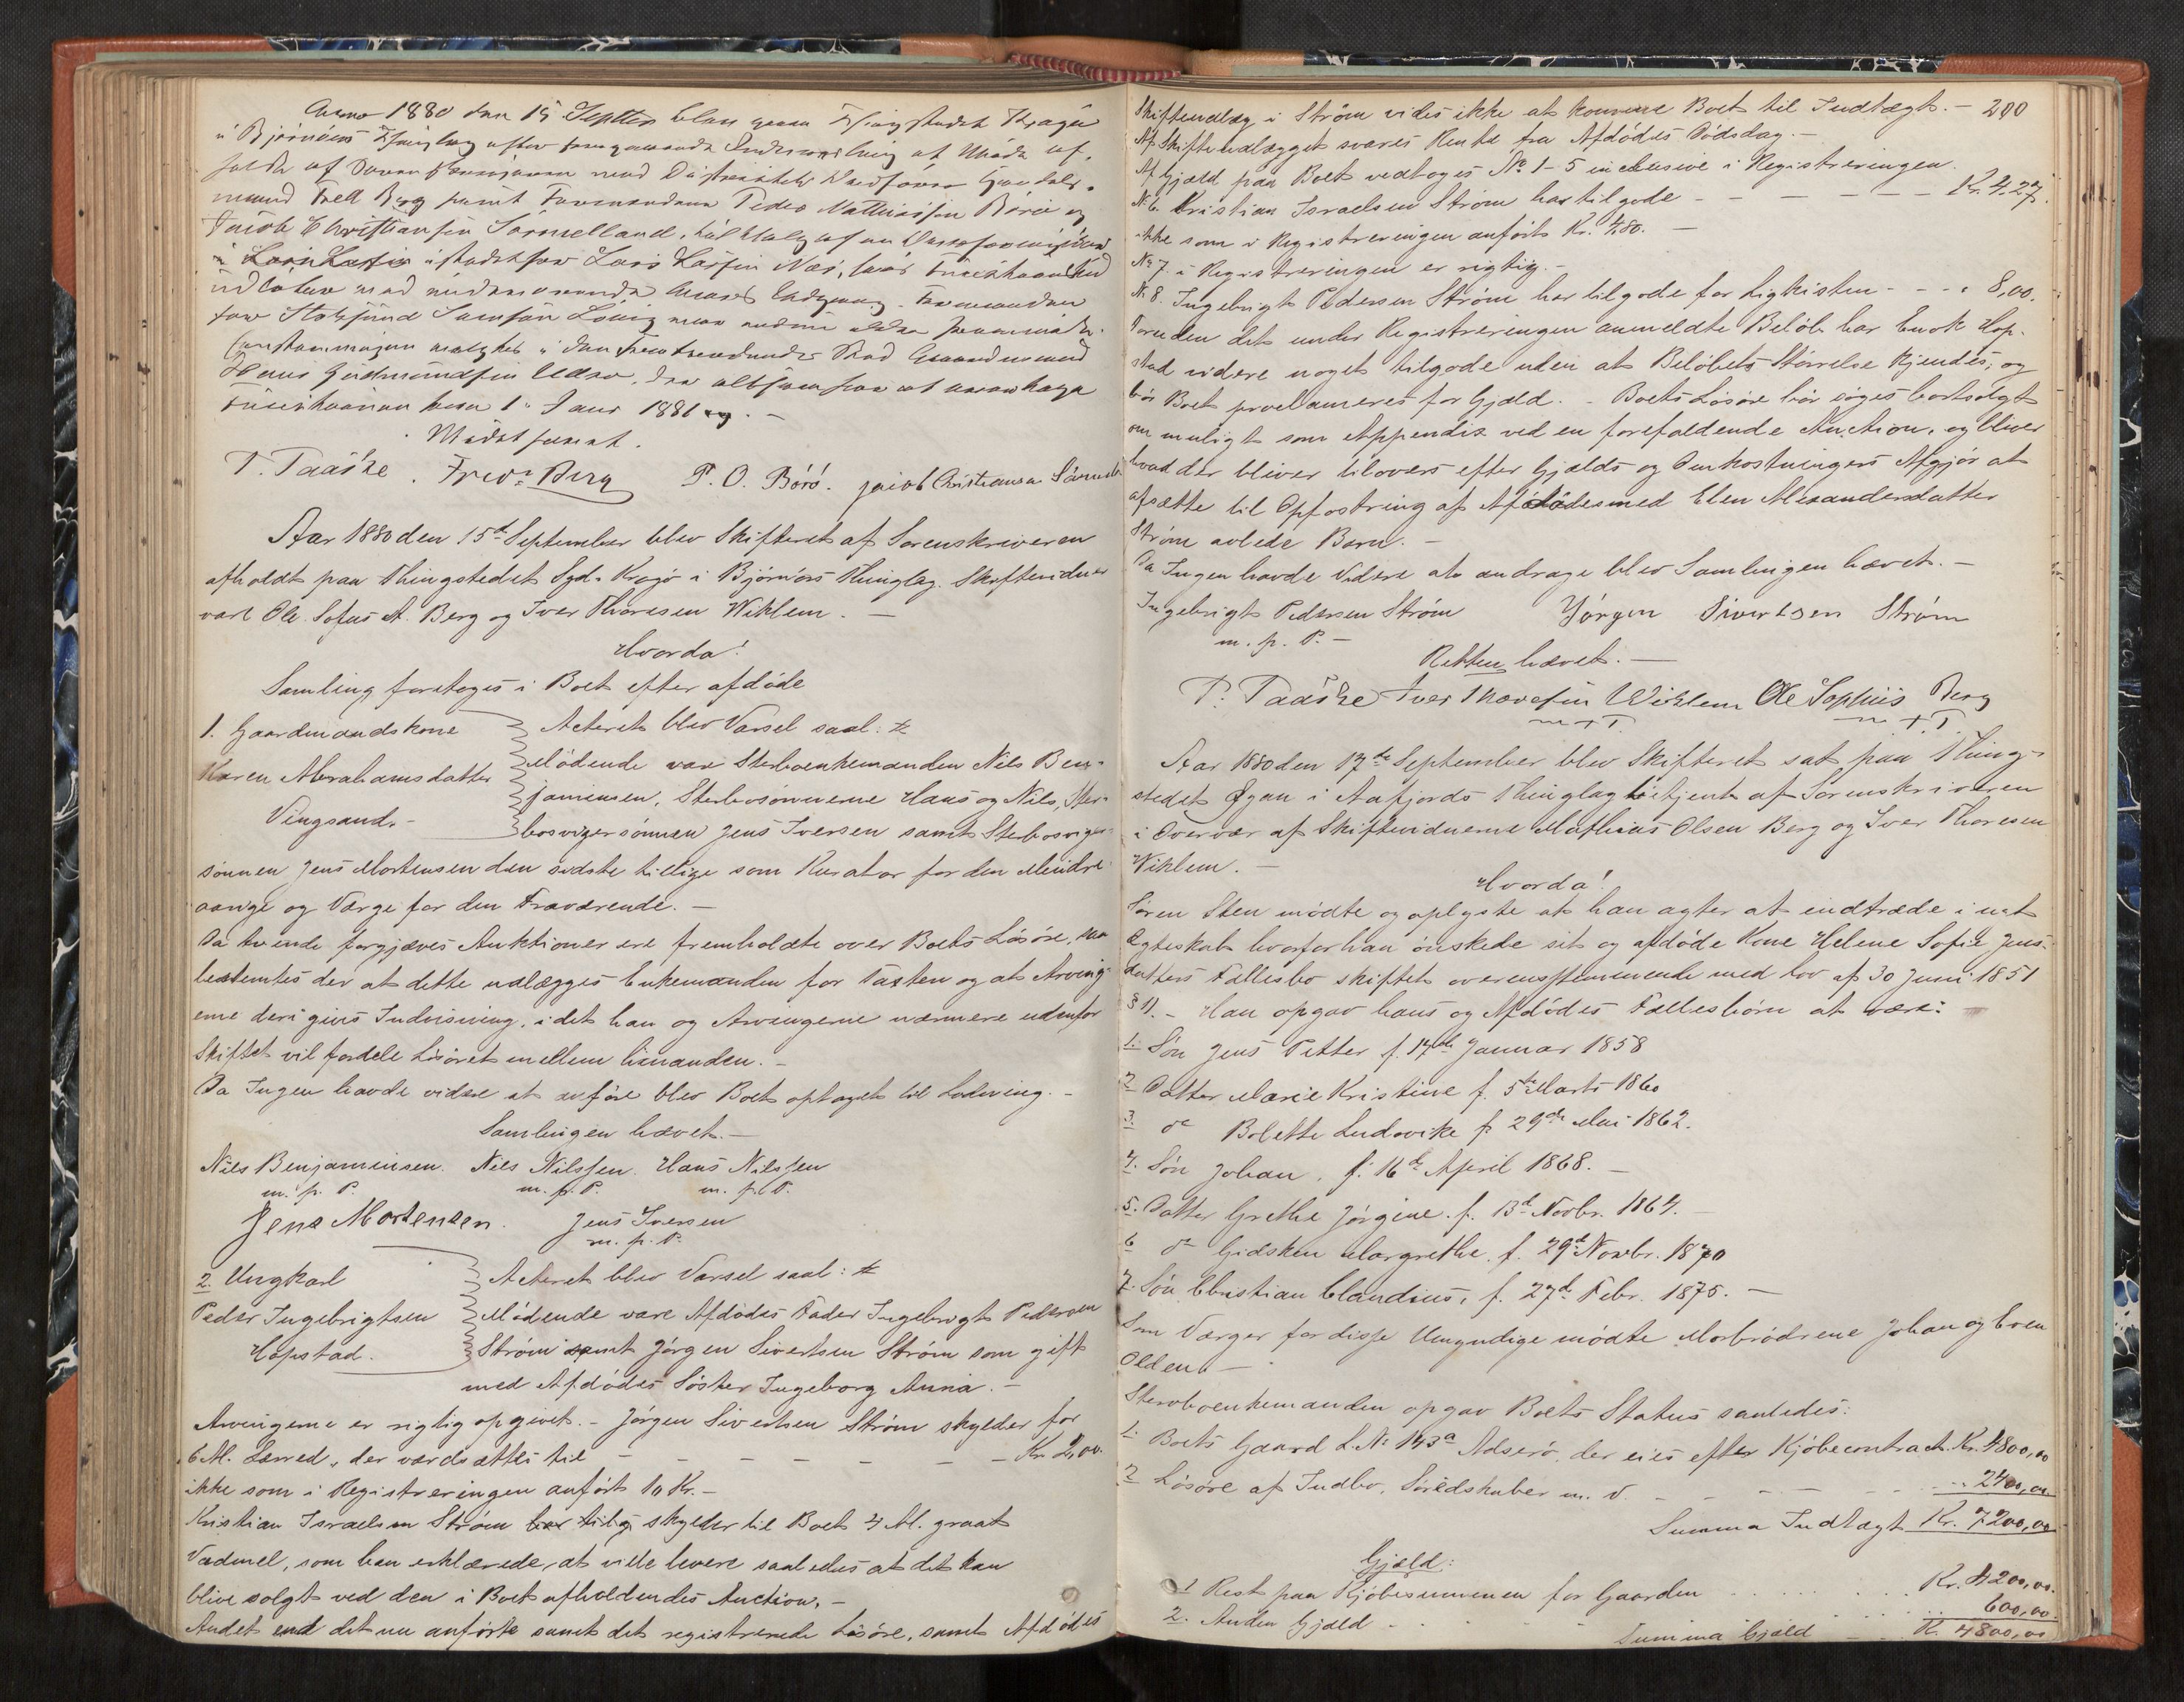 Anno 1880 den 15 Septbr blev paa Thingstedet Kragø
i Bjørnørs Thinglag efter foregaaende
af med Distriktets
mand Fredr Berg samt Formændene Peder Mathiassen Børø og
Jacob Christiansen Sørmelland,
i istedetfor Lars Larsen Næs, hvis
udløber med indeværende Aars Udgang. Formanden
for
valgtes i den Fratrædendes Sted Gaardmand
Hans Gudmundsen
1 Janr 1881 og.-
Mødet hævet.
P. Taaske. Fredr. Berg P. O. Börö. jacob Christiansen Sörmell
Aar 1880 den 15d September blev Skifteret af Sorenskriveren
afholdt paa Thingstedet Syd-Kragö i Björnörs Thinglag. Skiftevidner
vare Ole Sofus A. Berg og Iver Thoresen Wiklem. —
Hvorda!
Samling foretoges i Boet efter afdöde
1. Gaardmandskone
Karen Abrahamsdatter
Vingsand.-
Acteret blev Varsel saal:
Mödende vare Sterboenkemanden Nils Ben-
jaminsen, Sterbosönnerne Hans og Nils, Ster-
bosvigersönnen Jens Iversen samt Sterbosviger-
sönnen Jens Mortensen den sidste tillige som Kurator for den Mindre-
aarige og Værge for den Fraværende. —
Da tvende forgjæves Auktioner ere fremholdte over Boets Lösöre, saa
bestemtes der at dette udlægges Enkemanden for Taxten og at Arving-
erne deri givis Indvisning, idet han og Arvingerne nærmere udenfor
Skiftet vil fordele Lösöret mellem hinanden. -
Da Ingen havde videre at anföre blev Boet optaget til Lodning. -
Samlingen hævet. -
Nils Benjaminsen. Nils Nilssen. Hans Nilssen
m. p. P. m. p. P. m. p. P.
Jens Mortensen. Jens Iversen
m. p. P.
2. Ungkarl
Peder Ingebrigtsen
Hopstad.
Acteret blev Varsel saal:
Mödende vare Afdödes Fader Ingebrigt Pedersen
Ström samt Jörgen Sivertsen Ström som gift
med Afdödes Söster Ingeborg Anna. -
Arvingerne er rigtig opgivet. - Jörgen Sivertsen Ström skylder for
6 Al. Lærred, der værdsættes til - - - - - - Kr. 2,00.
ikke som i Registreringen anfört 10 Kr. -
Kristian Israelsen Ström har tilg skylder til Boet 4 Al. graat
Vadmel, som han erklærede, at ville levere saaledes at det kan
blive solgt ved den i Boet afholdendes Auction. -
Andet end det nu anförte samt det registrerede Lösöre, samt Afdödes
Skifteudlæg i Ström vides ikke at komme Boet til Indtægt. - 200
Af Skifteudlægget svares Rente fra Afdödes Dödsdag. -
Af Gjæld paa Boet vedtoges No 1-5 inclusive i Registreringen.
No 6. Kristian Israelsen Ström har tilgode - - - - - Kr. 4.27.
ikke som i Registreringen anfört Kr. 4,80. -
No 7. i Registreringen er rigtig. -
N. 8. Ingebrigt Pedersen Ström har tilgode for Ligkisten - - - " 8,00.
Foruden det under Registreringen anmeldte Belöb har Enok Hop-
stad videre noget tilgode uden at Belöbets Störrelse kjendes, og
bör Boet proclameres for Gjæld. - Boets Lösöre bör söges bortsolgt
om muligt som Appendix ved en forefaldende Auction, og bliver
hvad der bliver tilovers efter Gjælds og Omkostningers Afgjör at
afsætte til Opfostring af Afdödes med Elen Alexandersdatter
Ström avlede Barn. -
Da Ingen havde Videre at andrage blev Samlingen hævet. -
Ingebrigt Pedersen Ström Jörgen Sivertsen Ström
m. p. P. -
Retten hævet. —
P. Taaske Iver Thoresen Wiklem Ole Sophus Berg
Aar 1880 den 17de September blev Skifteret sat paa Thing-
stedet Ögan i Aafjords Thinglag betjent af Sorenskriveren
i Overvær af Skiftevidnerne Mathias Olsen Berg og Iver Thoresen
Wiklem. —
Hvorda!
Sören Sten mödte og oplyste at han agter at indtræde i nyt
Ægteskab hvorfor han önskede sit og afdöde Kone Helene Sofie Jens-
datters Fællesbo skiftet overensstemmende med Lov af 30 Juni 1851
§ 11. - Han opgav hans og Afdödes Fællesbörn at være:
1. Sön Jens Petter f. 17de Januar 1858
2 Datter Marie Kristine f. 5te Marts 1860
3. do Bolette Ludovike f. 29de Mai 1862.
4. Sön Johan, f. 16d April 1868. —
5. Datter Grethe Jörgine. f. 13d Novbr. 1864. —
6 do Gidsken Margrethe. f. 29d Novbr. 1870
7. Sön Christian Claudius, f. 27d Febr. 1875. —
Som Værger for disse Umyndige mödte Morbrödrene Johan og Even
Olden. —
Sterboenkemanden opgav Boets Status saaledes:
1. Boets Gaard L. No 143a Adserö, der eies efter Kjöbecontract. Kr. 4800,00
2 Lösöre af Indbo, Söredskaber m. v. - - - - - " 2400,00
Summa Indtægt Kr. 7200,00
Gjæld:
1 Rest paa Kjöbesummen for Gaarden Kr. 4200,00.
2. Anden Gjæld 600,00.
Summa Gjæld K. 4800,00